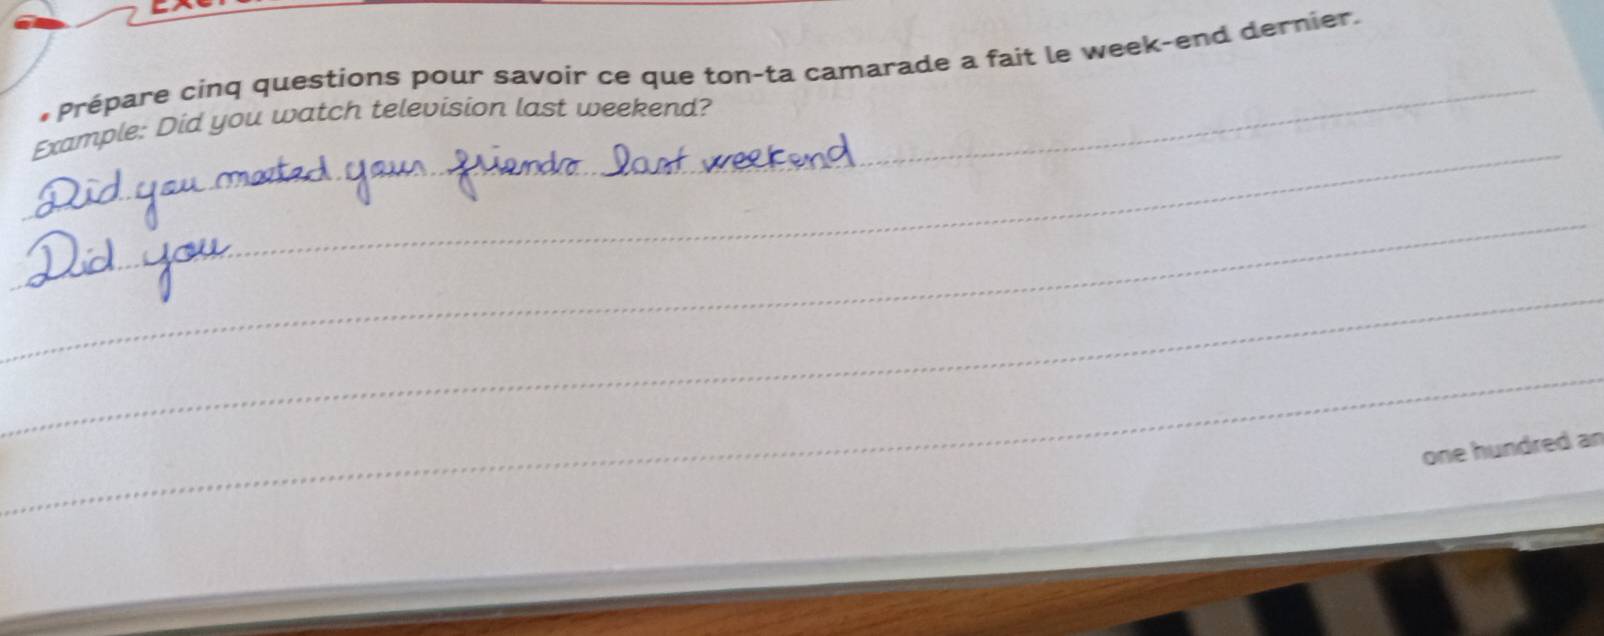 • Prépare cinq questions pour savoir ce que ton-ta camarade a fait le week-end dernier.
Example: Did you watch television last weekend?
Did you meeted your friends last weekend
Did you
one hundred an